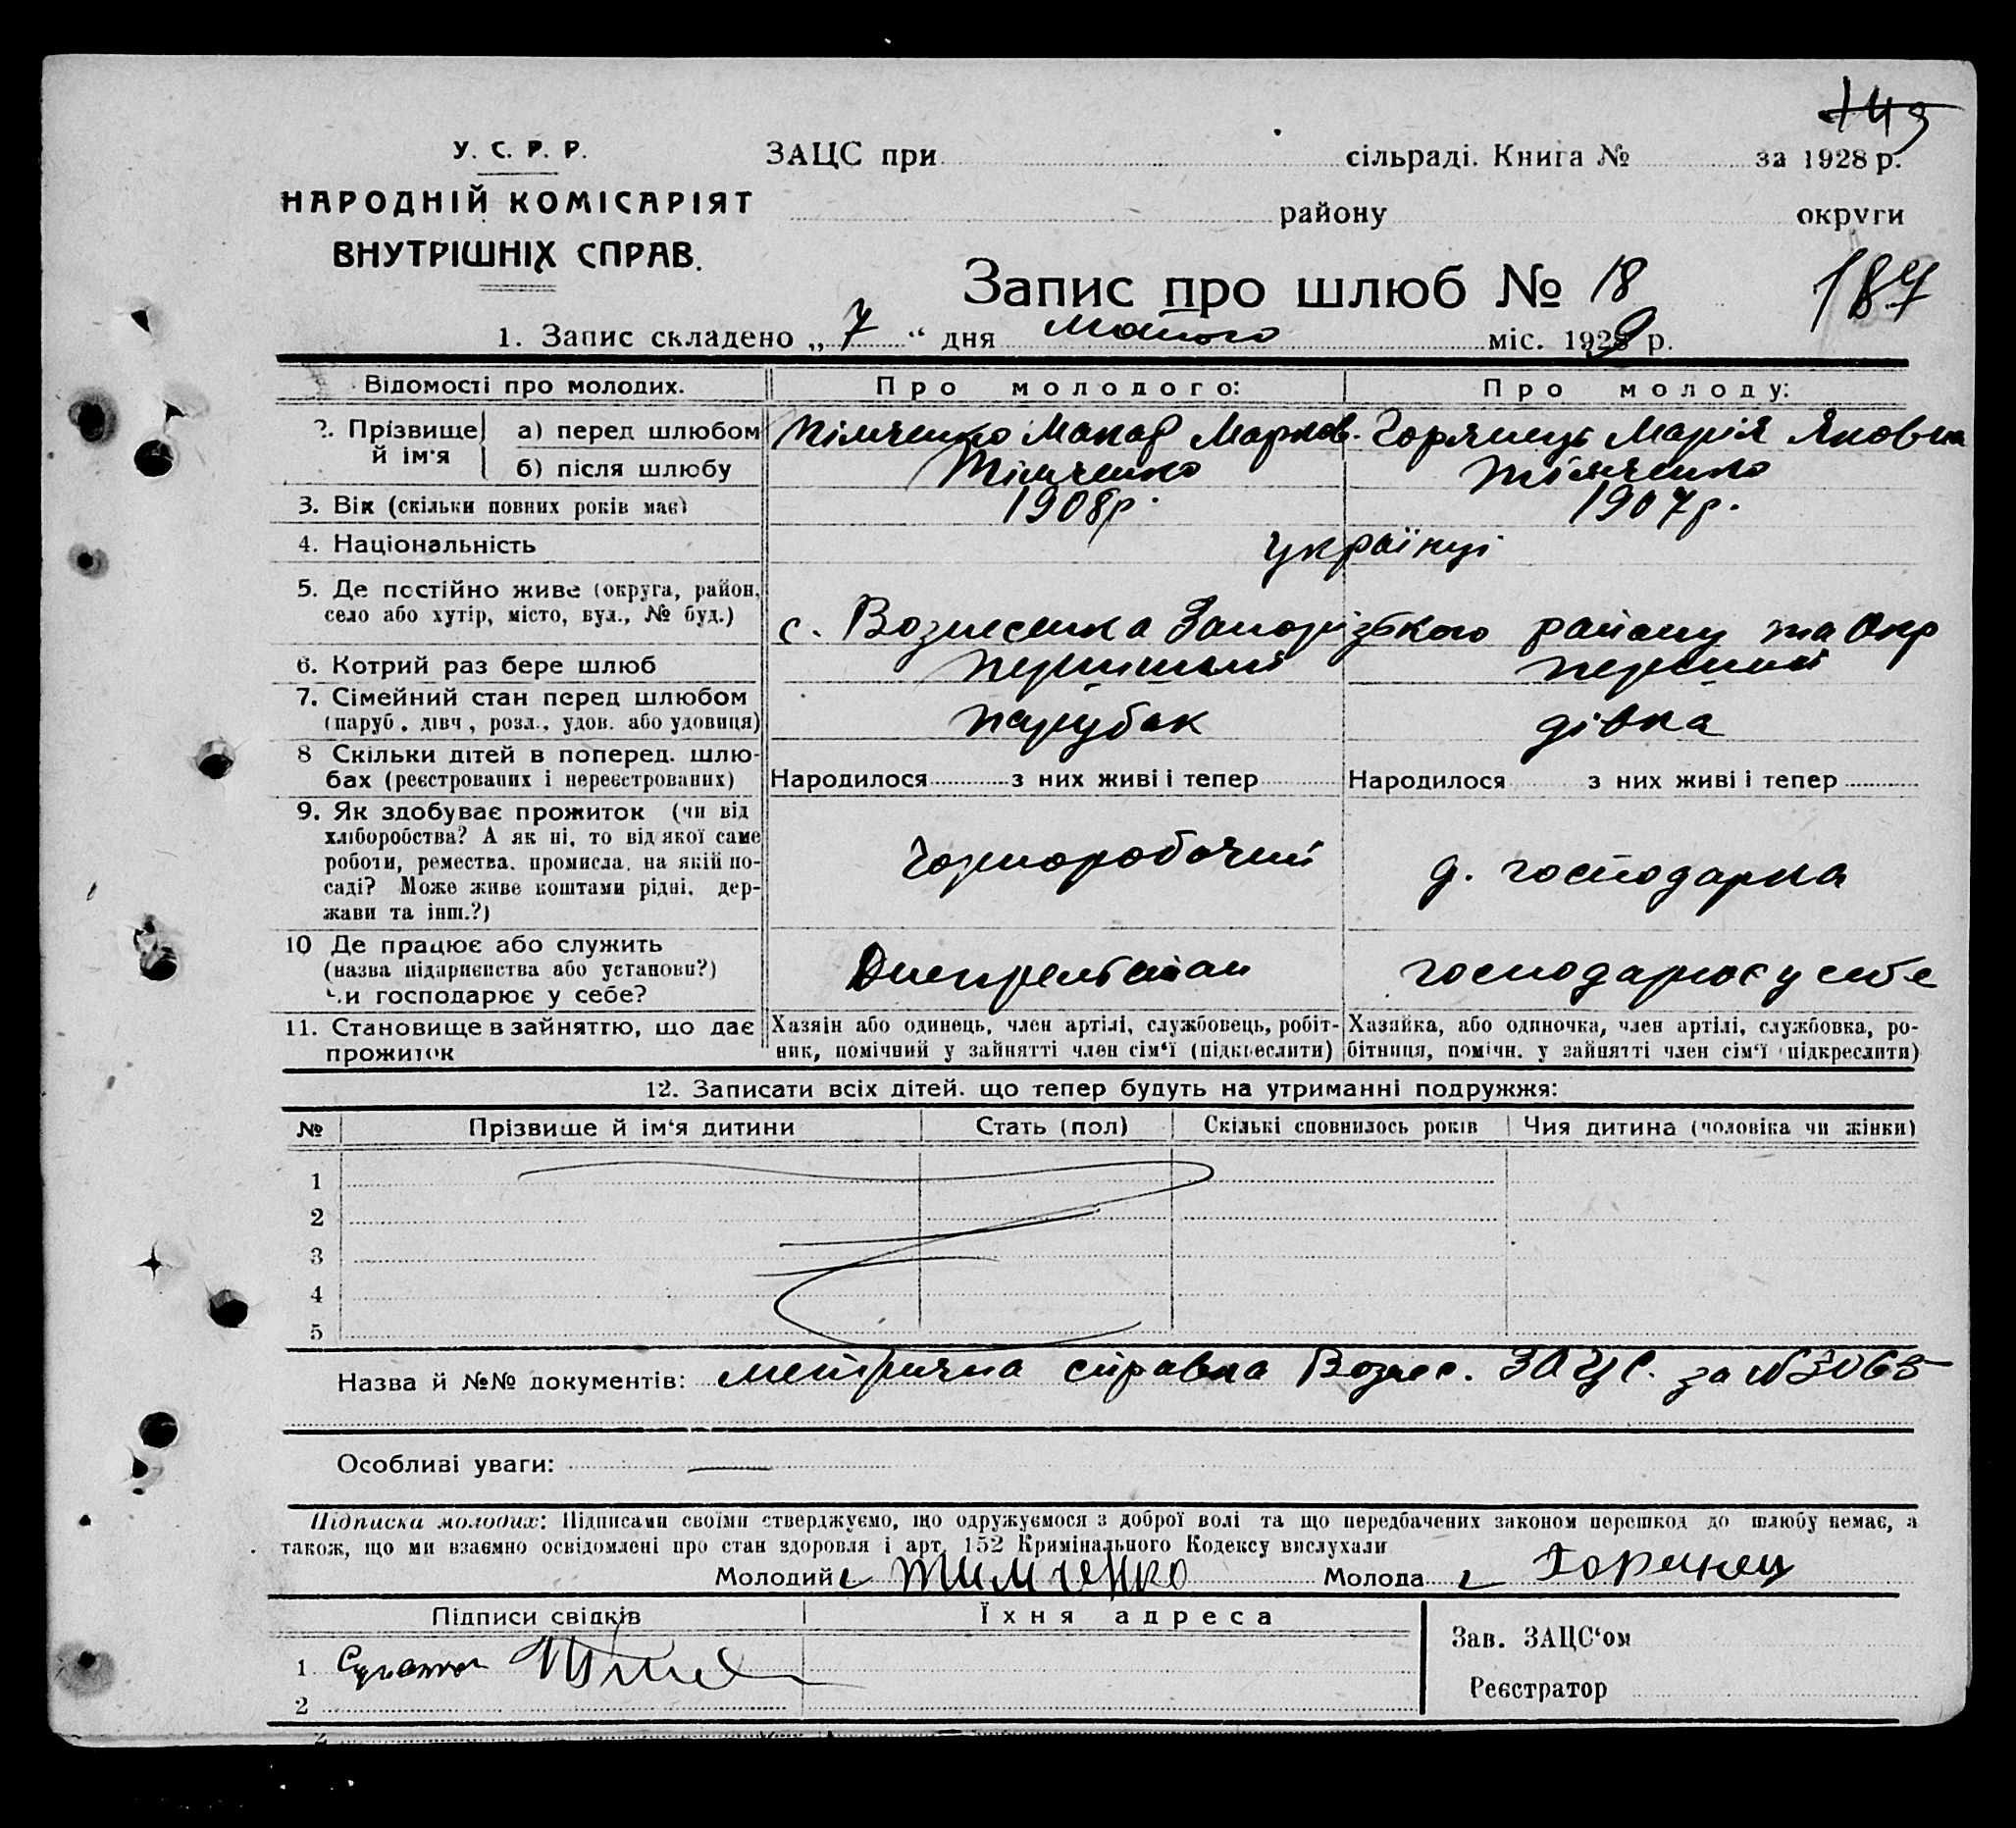 149
У. С. Р. Р.
НАРОДНІЙ КОМІСАРІЯТ
ВНУТРІШНІХ СПРАВ.
ЗАЦС при сільраді. Книга № за 1928 р.
району округи
Запис про шлюб № 18
187
1. Запис складено „ 7 “ дня міс. 1929 р.
Відомості про молодих. Про молодого: Про молоду:
2. Прізвище й ім'я а) перед шлюбом Тімченко Макар Марков. Горянець Марія Яковна
б) після шлюбу Тімченко Тімченко
3. Вік (скільки повних років має) 1908р. 1907р.
4. Національність українці
5. Де постійно живе (округа, район, село або хутір, місто, вул., № буд.) с. Вознесенка Запорізького району та Окр
6. Котрий раз бере шлюб перший перший
7. Сімейний стан перед шлюбом (паруб., дівч., розл., удов. або удовиця) парубок дівка
8 Скільки дітей в поперед. шлюбах (реєстрованих і нереєстрованих) Народилося з них живі і тепер Народилося з них живі і тепер
9. Як здобуває прожиток (чи від хліборобства? А як ні, то від якої саме роботи, ремества, промисла, на якій посаді? Може живе коштами рідні, держави та інш.?) Чорноробочий д. господарка
10 Де працює або служить (назва підприємства або установи?) Чи господарює у себе? господарює у себе
11. Становище в зайняттю, що дає прожиток Хазяін або одинець, член артілі, службовець, робітник, помічний у зайнятті член сім'ї (підкреслити) Хазяйка, або одиночка, член артілі, службовка, робітниця, помічн. у зайнятті член сім'ї (підкреслити)
12. Записати всіх дітей, що тепер будуть на утриманні подружжя:
№ Прізвише й ім'я дитини Стать (пол) Скількі сповнилось років Чия дитина (чоловіка чи жінки)
1
2
3
4
5
Назва й №№ документів: метрична справка Вознес. ЗАЦС. за №
Особливі уваги: —
Підписка молодих: Підписами своїми стверджуємо, що одружуємося з доброї волі та що передбачених законом перешкод до шлюбу немає, а
також, що ми взаємно освідомлені про стан здоровля і арт. 152 Кримінального Кодексу вислухали
Молодий Тимченко Молода Горинец
Підписи свідків Їхня адреса
Зав. ЗАЦС'ом
1
Реєстратор
2
2